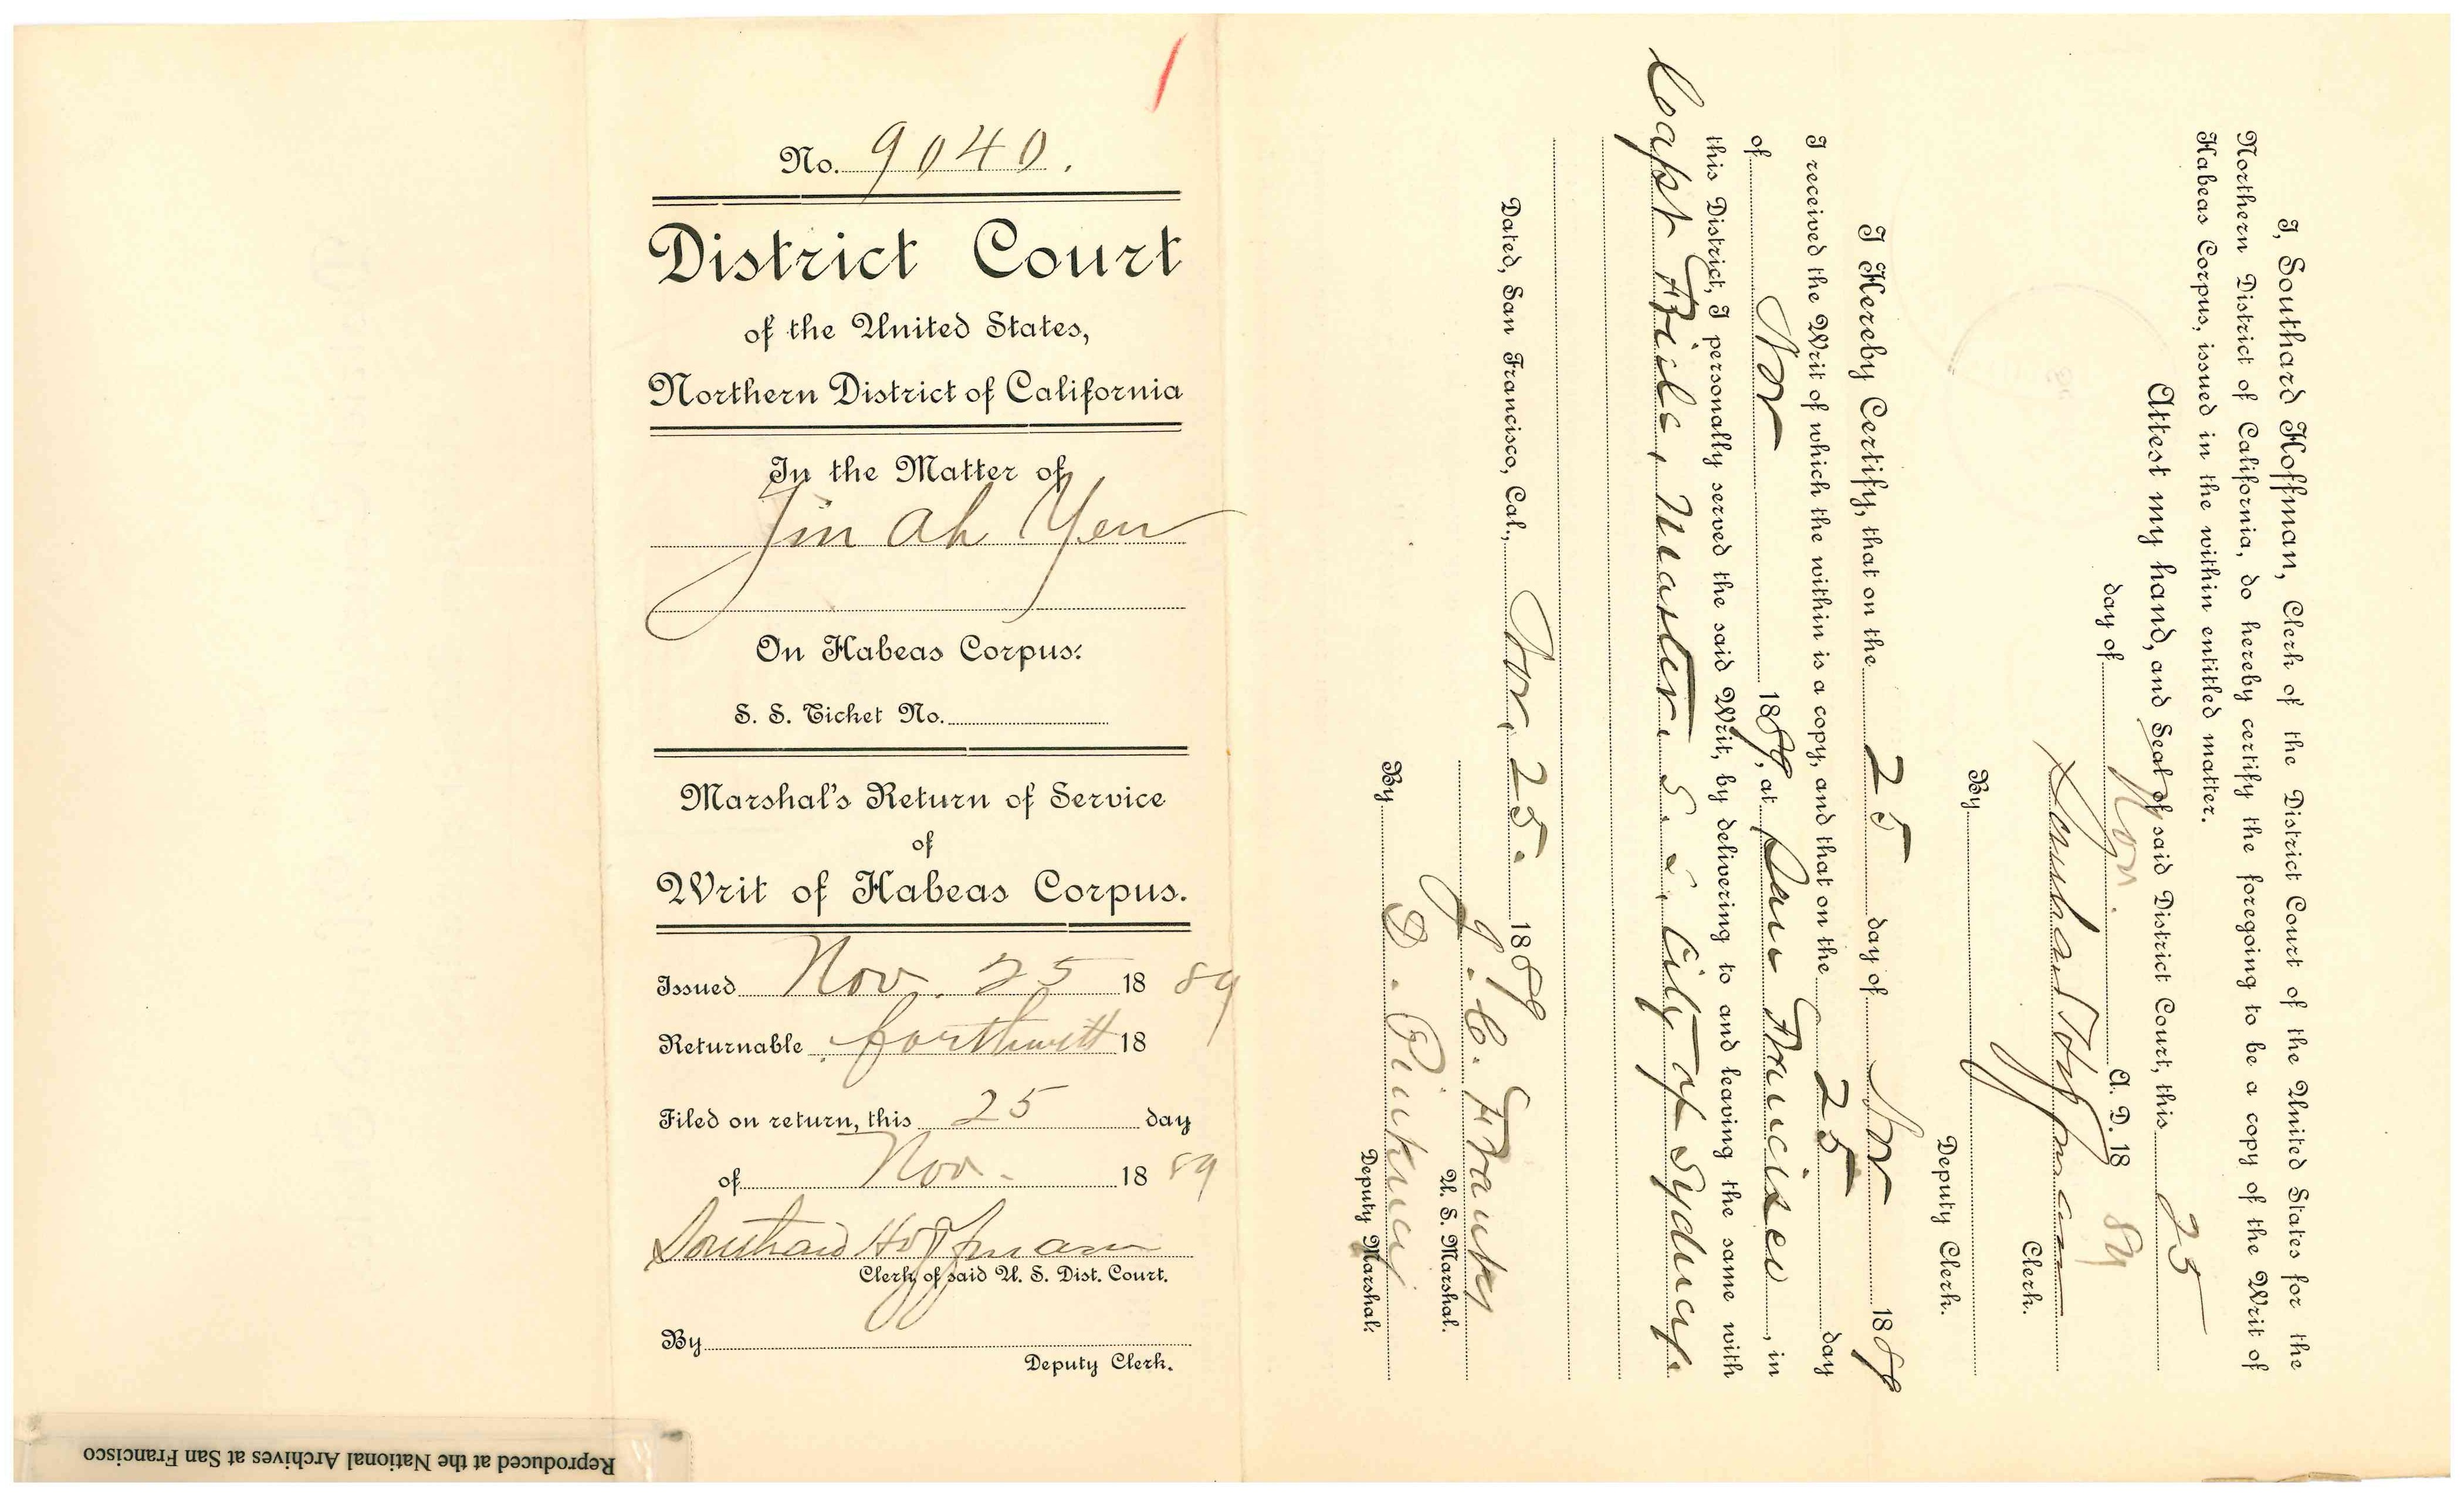 No. 9040.
District Court
of the United States,
Northern District of California
In the Matter of
Jin Ah Yen
On Habeas Corpus:
S. S. Ticket No.
Marshal's Return of Service
of
Writ of Habeas Corpus.
Issued Nov. 25 1889
Returnable forthwith 18
Filed on return, this 25 day
of Nov. 1889
Southard Hoffman
Clerk of said U. S. Dist. Court.
By
Deputy Clerk.
I, Southard Hoffman, Clerk of the District Court of the United States for the
Northern District of California, do hereby certify the foregoing to be a copy of the Writ of
Habeas Corpus, issued in the within entitled matter.
Attest my hand, and Seal of said District Court, this 25
day of Nov. A. D. 1889
Southard Hoffman
Clerk.
By
Deputy Clerk.
I Hereby Certify, that on the 25 day of Nov 1889
I received the Writ of which the within is a copy, and that on the 25 day
of Nov 1889, at San Francisco, in
this District, I personally served the said Writ, by delivering to and leaving the same with
Capt Friele, Master. S. S. City of Sydney.
Dated, San Francisco, Cal., Nov. 25. 1889
J. C. Franks
U. S. Marshal.
By D. Pinkney
Deputy Marshal.
Reproduced at the National Archives at San Francisco